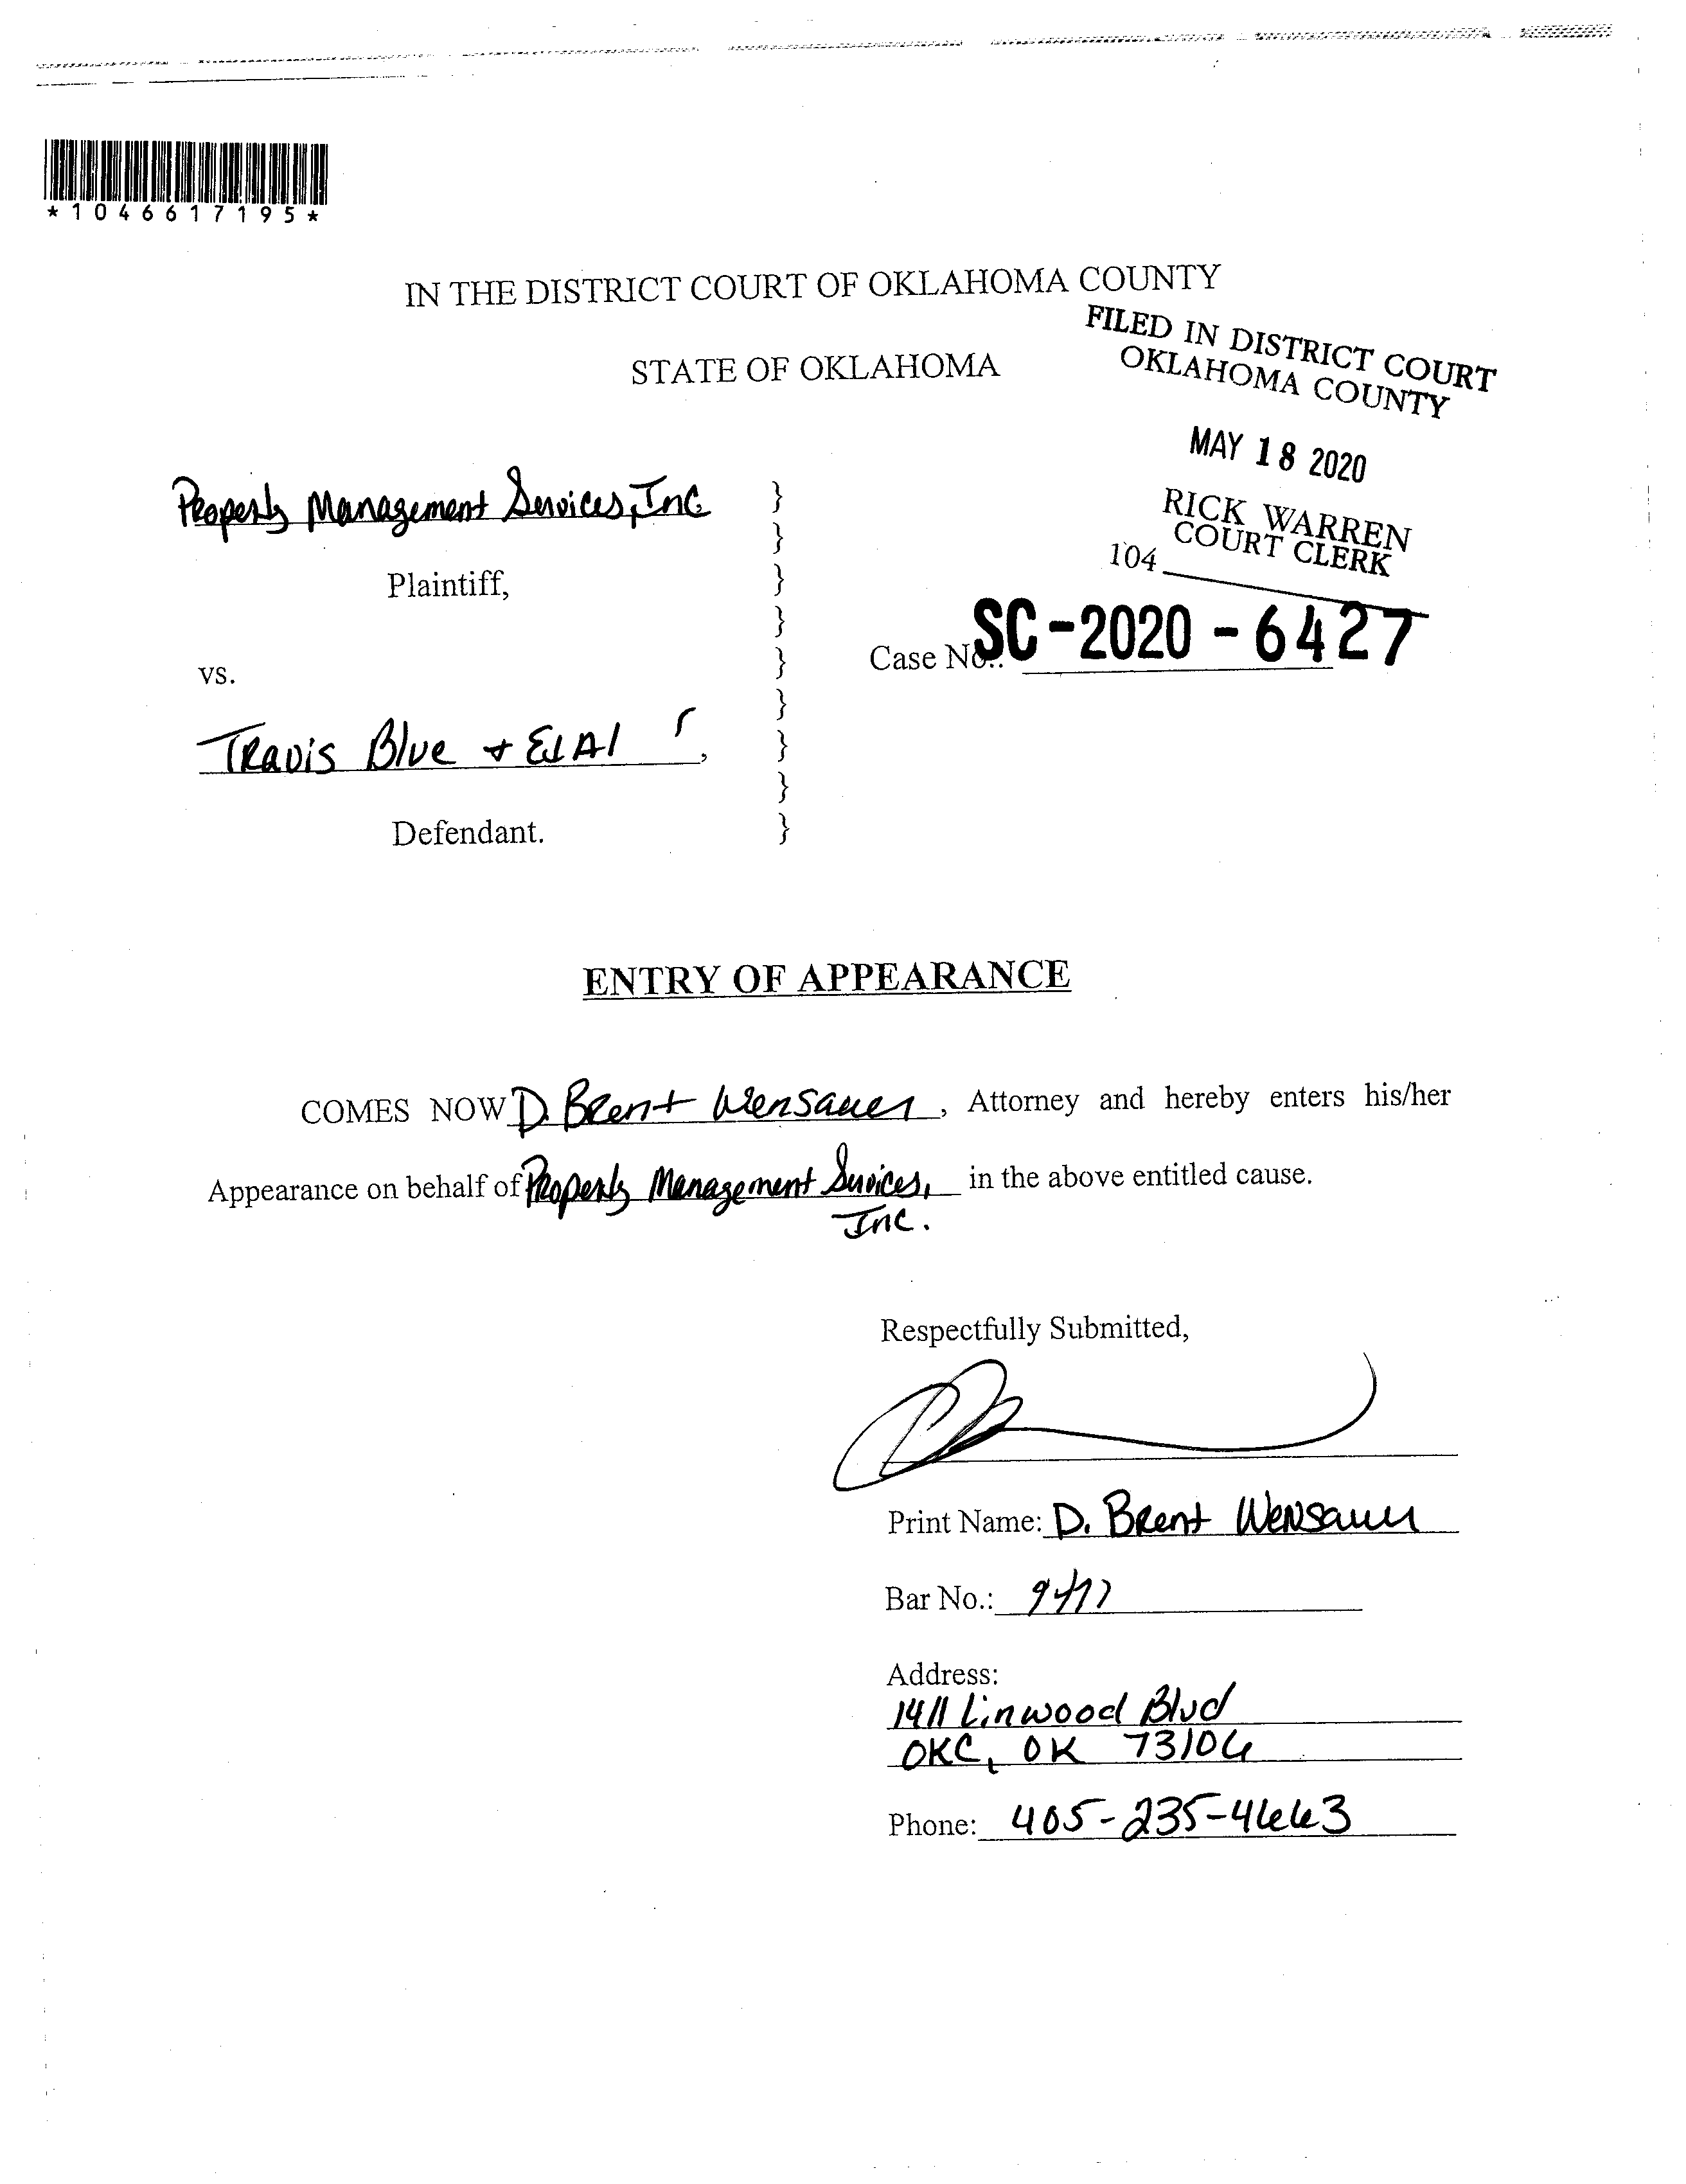 *1046617195*
IN THE DISTRICT COURT OF OKLAHOMA COUNTY
STATE OF OKLAHOMA
FILED IN DISTRICT COURT
OKLAHOMA COUNTY
MAY 18 2020
RICK WARREN
COURT CLERK
104
Property Management Services, Inc.
}
}
}
}
}
}
}
}
}
Plaintiff,
vs.
Case No.: SC-2020-6427
Travis Blue + Et Al,
Defendant.
ENTRY OF APPEARANCE
COMES NOW D. Brent Wensauer, Attorney and hereby enters his/her
Appearance on behalf of Property Management Services, in the above entitled cause.
Inc.
Respectfully Submitted,
Print Name: D. Brent Wensauer
Bar No.:
Address:
1411 Linwood Blvd
OKC, OK 73106
Phone: 405-235-4663